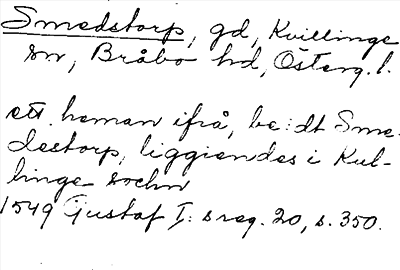 Smedstorp, gd, Kvillinge
sn, Bråbo hd, Österg. l.
ett heman ifrå, be:dt Sme-
destorp, liggiendes i Kul-
linge sochn
1549 Gustaf I: s reg. 20, s. 350.